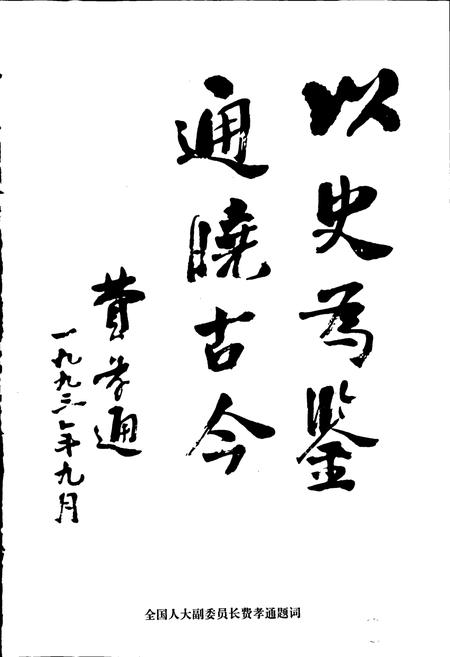 以史为鉴
通晓古今
费孝通
一九九三年九月
全国人大副委员长费孝通题词